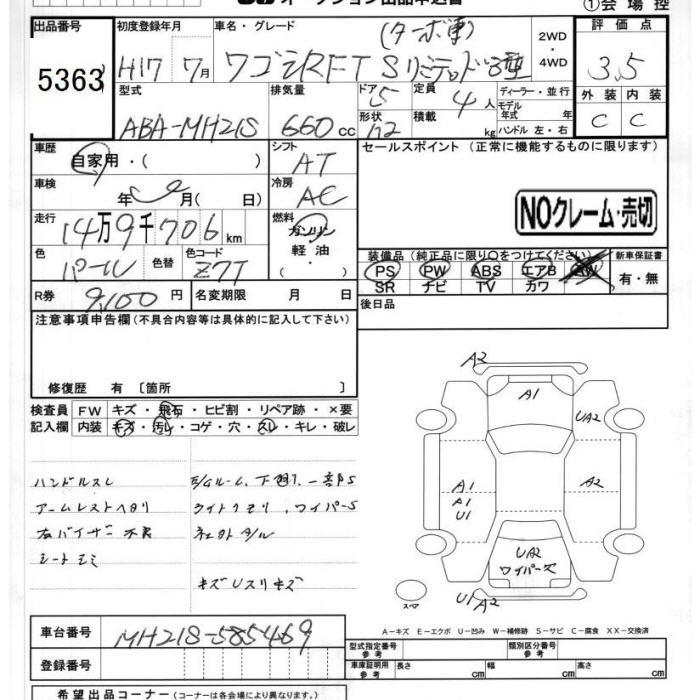 オークション出品申込書
①会場控
出品番号
5363
初度登録年月
H17 7月
車名・グレード
(ターボ車)
ワゴンR FT Sリミテッド3型
2WD
・
4WD
評価点
3.5
型式
ABA-MH21S
排気量
660cc
ドア
5
形状
定員
4人
積載 kg
ディーラー・並行
モデル年式 年
ハンドル 左・右
外装 内装
C C
車歴
自家用・( )
シフト
AT
セールスポイント (正常に機能するものに限ります)
車検
年 月( 日)
冷房
AC
NOクレーム・売切
走行
14万9千706km
燃料
ガソリン
軽油
・( )
色
パール
色替
色コード
Z7T
装備品(純正品に限り○をつけてください)
新車保証書
PS PW ABS エアB AW
SR ナビ TV カワ
有・無
R券
9,100円
名変期限 月 日
後日品
注意事項申告欄(不具合内容等は具体的に記入して下さい)
修復歴 有 〔箇所 〕
検査員
記入欄
FW キズ・飛石・ヒビ割・リペア跡・×要
内装 キズ・汚レ・コゲ・穴・スレ・キレ・破レ
ハンドルスレ
E/Gルーム、下廻り、一部S
アームレストヘタリ
ライトクモリ、ワイパーS
右バイザー不良
シートシミ
キズ Uスリキズ
A2
A1
UA2
A1
A1
U1
A2
UA2
ワイパー欠
スペア
U1A2
A−キズ E−エクボ U−凹み W−補修跡 S−サビ C−腐食 XX−交換済
車台番号
MH21S-585469
登録番号
型式指定番号
参考
類別区分番号
参考
車庫証明用
参考
長さ cm
幅 cm
高さ cm
希望出品コーナー(コーナーは各会場により異なります。)